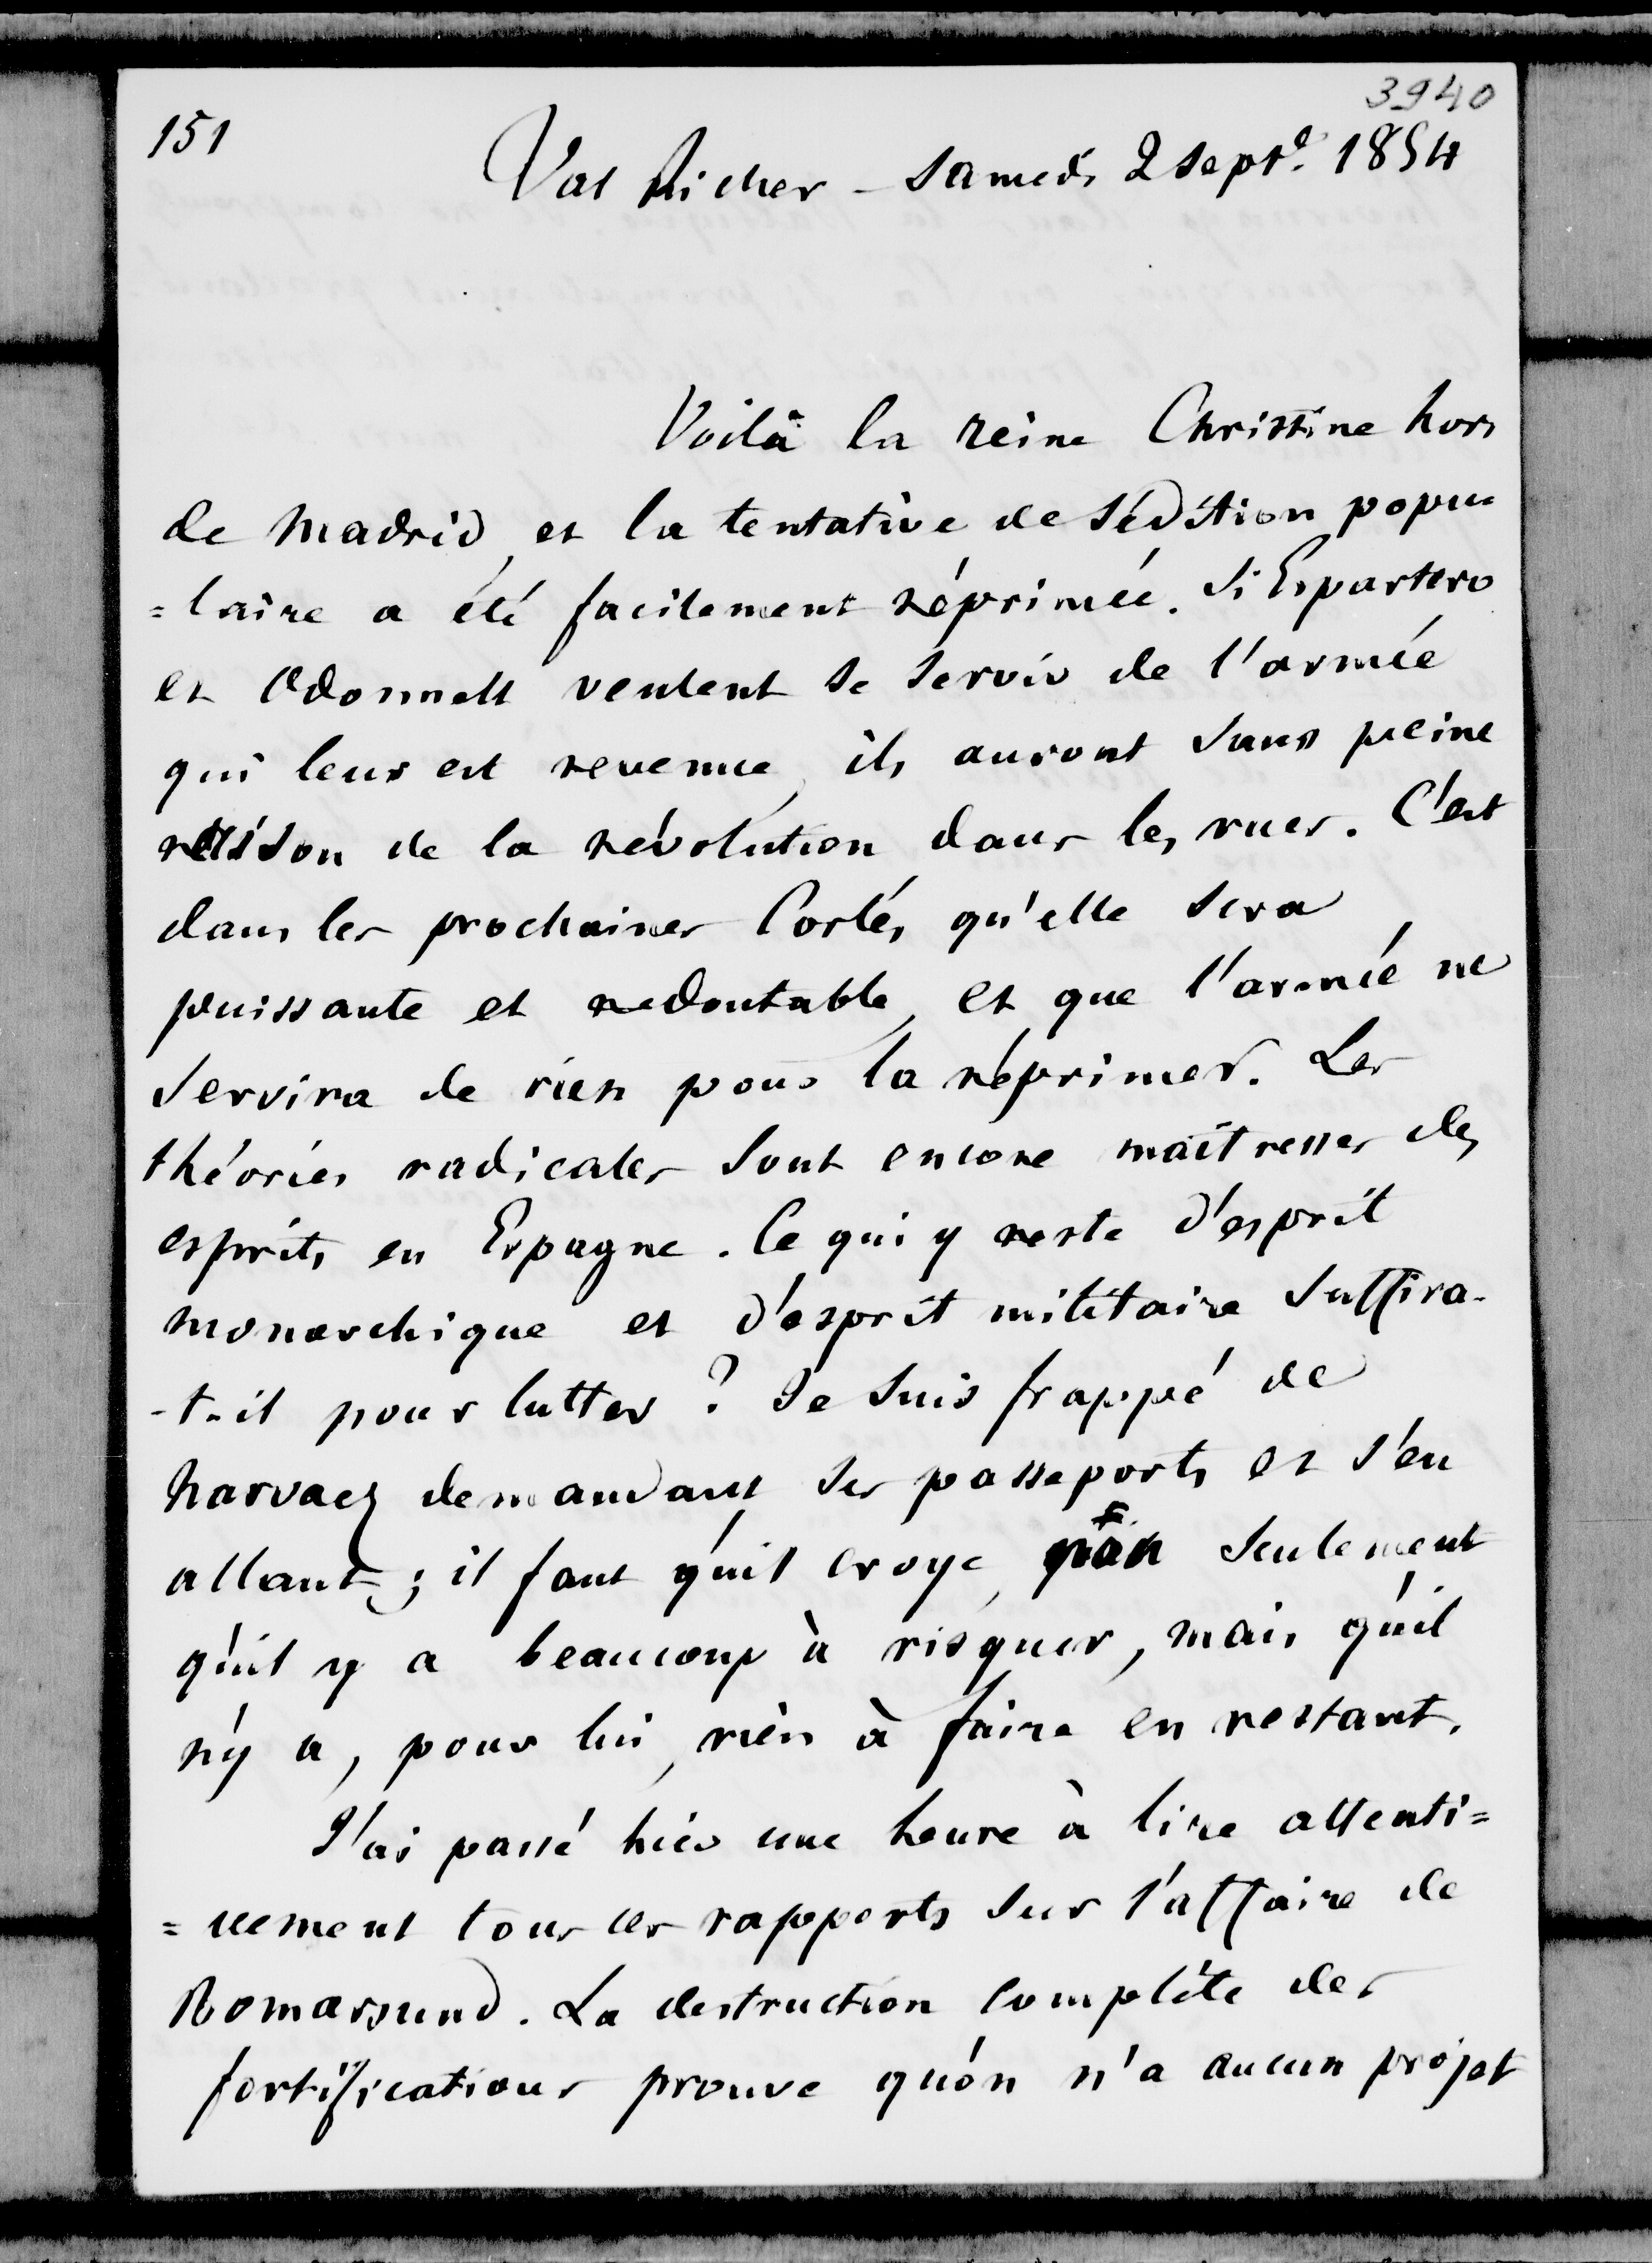 3940
151
Val Richer - Samedi 2 Septe. 1854
Voilà la reine Christine hors
de Madrid, et la tentative de sédition popu=
=laire a été facilement réprimée. Si Espartero
et Odonnell veulent se servir de l'armée
qui leur est revenue, ils auront sans peine
raison de la révolution dans les rues. C'est
dans les prochaines Cortés qu'elle sera
puissante et redoutable, et que l'armée ne
servira de rien pour la réprimer. Les
théories radicales sont encore maîtresses des
esprits en Espagne. Ce qui y reste d'esprit
monarchique et d'esprit militaire suffira-
-t-il pour lutter ? Je suis frappé de
Narvaez demandant ses passeports et s'en
allant ; il faut qu'il croye, non seulement
qu'il y a beaucoup à risquer, mais qu'il
n'y a, pour lui, rien à faire en restant.
J'ai passé hier une heure à lire attenti=
=vement tous les rapports sur l'affaire de
Bomarsund. La destruction complète des
fortifications prouve qu'on n'a aucun projet